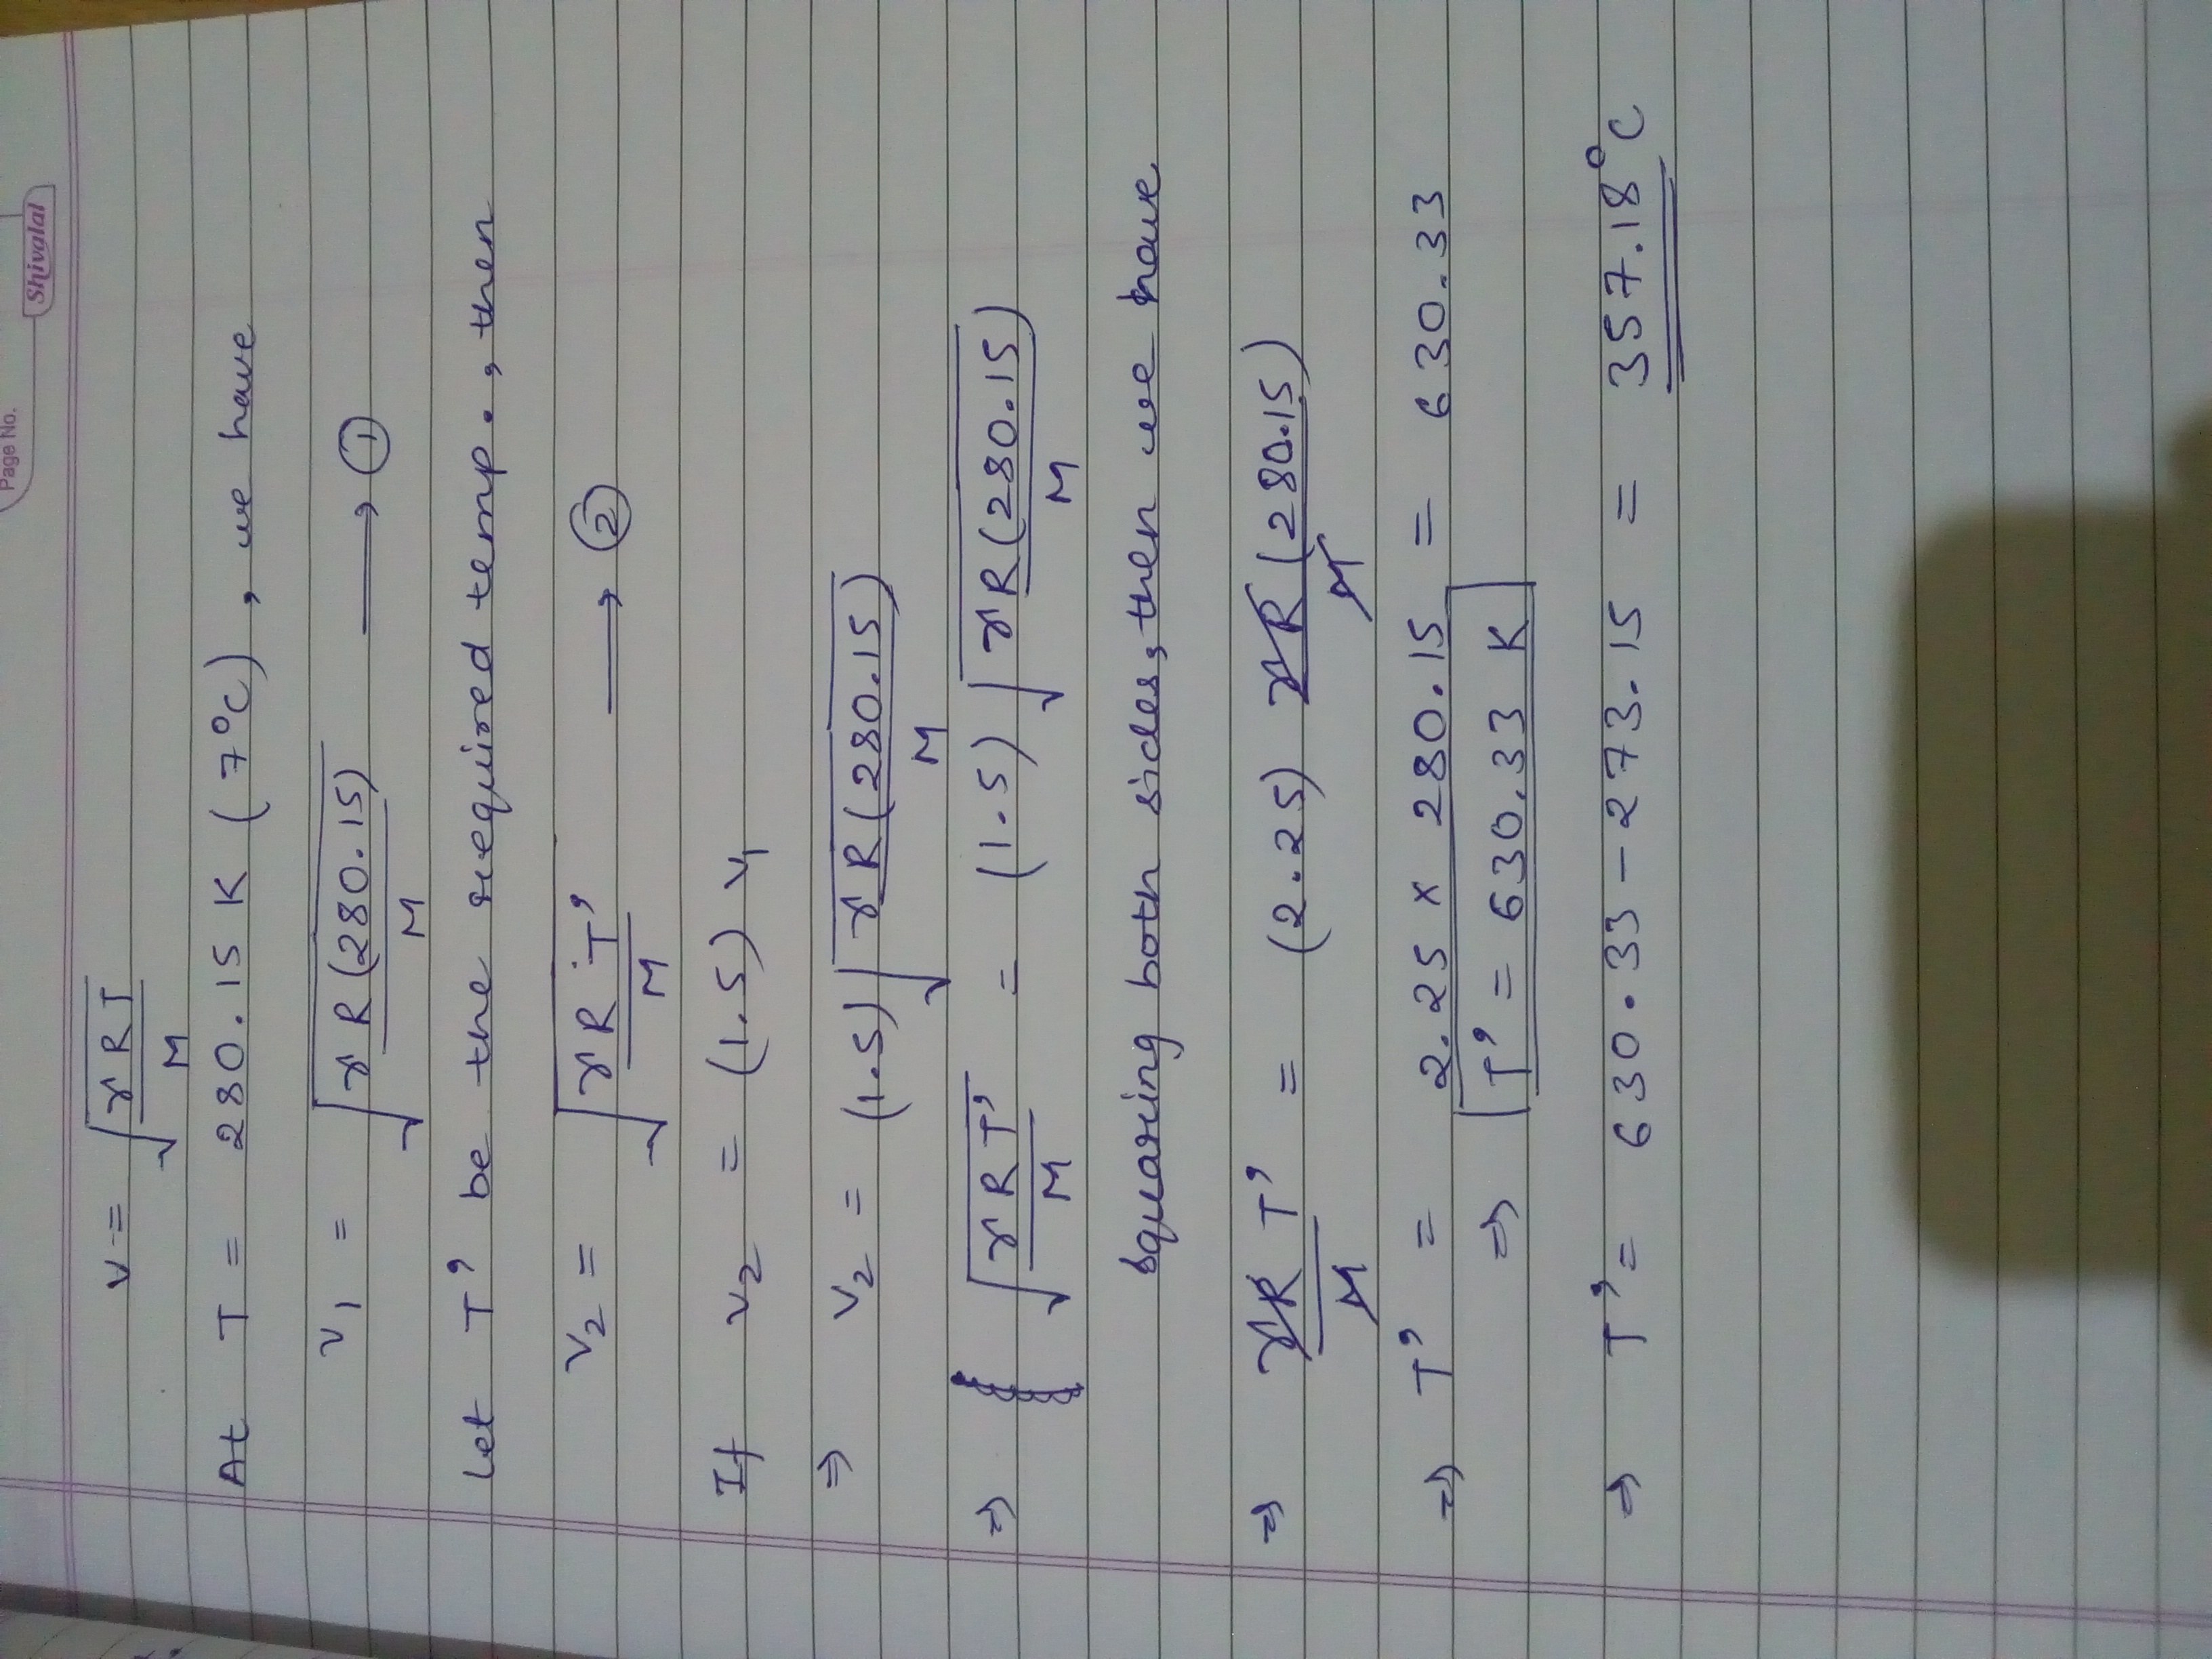 Page No.
Shivalal
v = √(γRT/M)
At T = 280.15 K (7°C), we have
v₁ = √(γR(280.15)/M) → ①
Let T' be the required temp., then
v₂ = √(γRT'/M) → ②
If v₂ = (1.5) v₁
⇒ v₂ = (1.5) √(γR(280.15)/M)
⇒ √(γRT'/M) = (1.5) √(γR(280.15)/M)
Squaring both sides, then we have
⇒ γRT'/M = (2.25) γR(280.15)/M
⇒ T' = 2.25 × 280.15 = 630.33
⇒ T' = 630.33 K
⇒ T' = 630.33 - 273.15 = 357.18°C